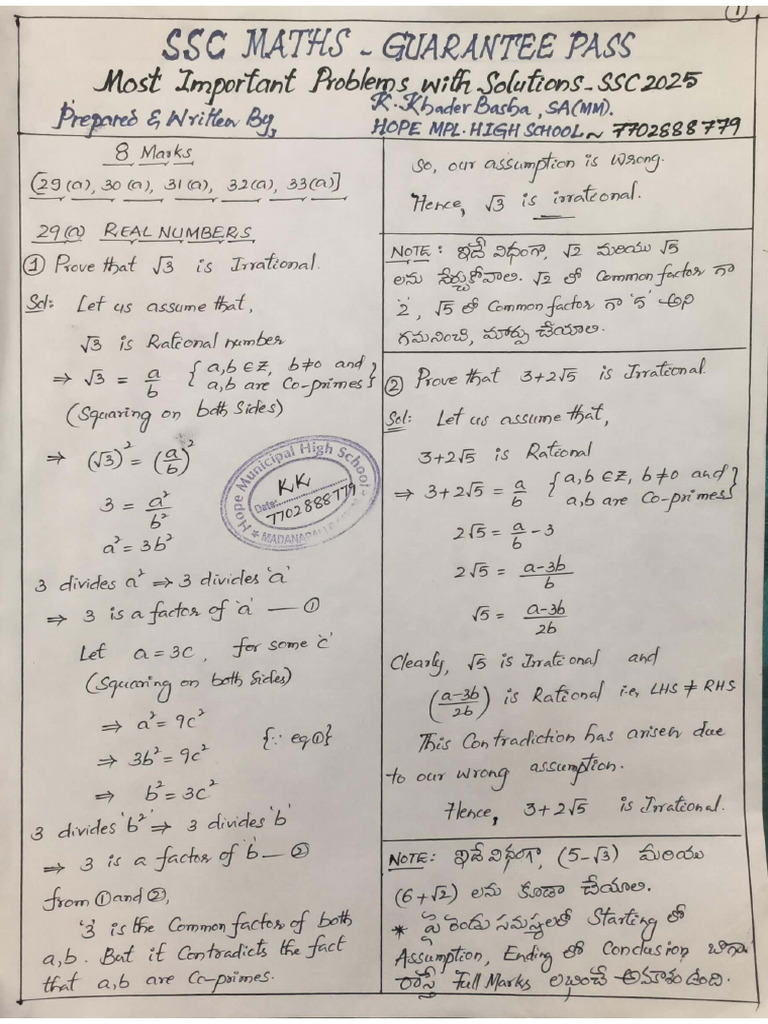 1
SSC MATHS - GUARANTEE PASS
Most Important Problems with Solutions - SSC 2025
Prepared & Written By,
K. Khader Basha, SA(MM).
HOPE MPL. HIGH SCHOOL ~ 7702888779
8 Marks
[29(a), 30(a), 31(a), 32(a), 33(a)]
29(a) REAL NUMBERS
① Prove that √3 is Irrational.
Sol: Let us assume that,
√3 is Rational number
⇒ √3 = a/b {a,b ∈ Z, b≠0 and
a,b are Co-primes}
(Squaring on both Sides)
⇒ (√3)² = (a/b)²
3 = a²/b²
a² = 3b²
3 divides a² ⇒ 3 divides 'a'
⇒ 3 is a factor of 'a' — ①
Let a = 3c, for some 'c'
(Squaring on both Sides)
⇒ a² = 9c²
⇒ 3b² = 9c² {∵ eq①}
⇒ b² = 3c²
3 divides 'b²' ⇒ 3 divides 'b'
⇒ 3 is a factor of 'b' — ②
from ① and ②,
'3' is the Common factor of both
a,b. But it Contradicts the fact
that a,b are Co-primes.
Hope Municipal High School
KK
Date:
7702888779
So, our assumption is Wrong.
Hence, √3 is irrational.
NOTE: ఇదే విధంగా, √2 మరియు √5
లను నేర్చుకోవాలి. √2 లో Common factor గా
'2', √5 లో Common factor గా '5' అని
గమనించి, మార్పు చేయాలి.
② Prove that 3+2√5 is Irrational.
Sol: Let us assume that,
3+2√5 is Rational
⇒ 3+2√5 = a/b {a,b ∈ Z, b≠0 and
a,b are Co-primes}
2√5 = a/b - 3
2√5 = a-3b/b
√5 = a-3b/2b
Clearly, √5 is Irrational and
(a-3b/2b) is Rational i.e, LHS ≠ RHS
This Contradiction has arisen due
to our wrong assumption.
Hence, 3+2√5 is Irrational.
NOTE: ఇదే విధంగా, (5-√3) మరియు
(6+√2) లను కూడా చేయాలి.
* పై రెండు సమస్యలలో Starting లో
Assumption, Ending లో Conclusion బాగా
రాస్తే Full Marks లభించే అవకాశం ఉంది.